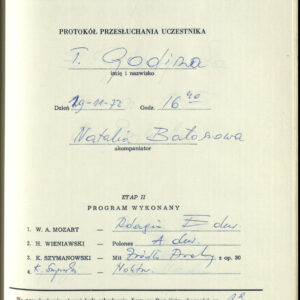 PROTOKÓŁ PRZESŁUCHANIA UCZESTNIKA
T. Godisa
imię i nazwisko
Dzień 19-11-72 Godz. 16 40
Natalia Batosowa
akompaniator
ETAP II
PROGRAM WYKONANY
1. W. A. MOZART — Adagio E dur
2. H. WIENIAWSKI — Polonez A dur
3. K. SZYMANOWSKI — Mit z op. 30
4. Nokturn